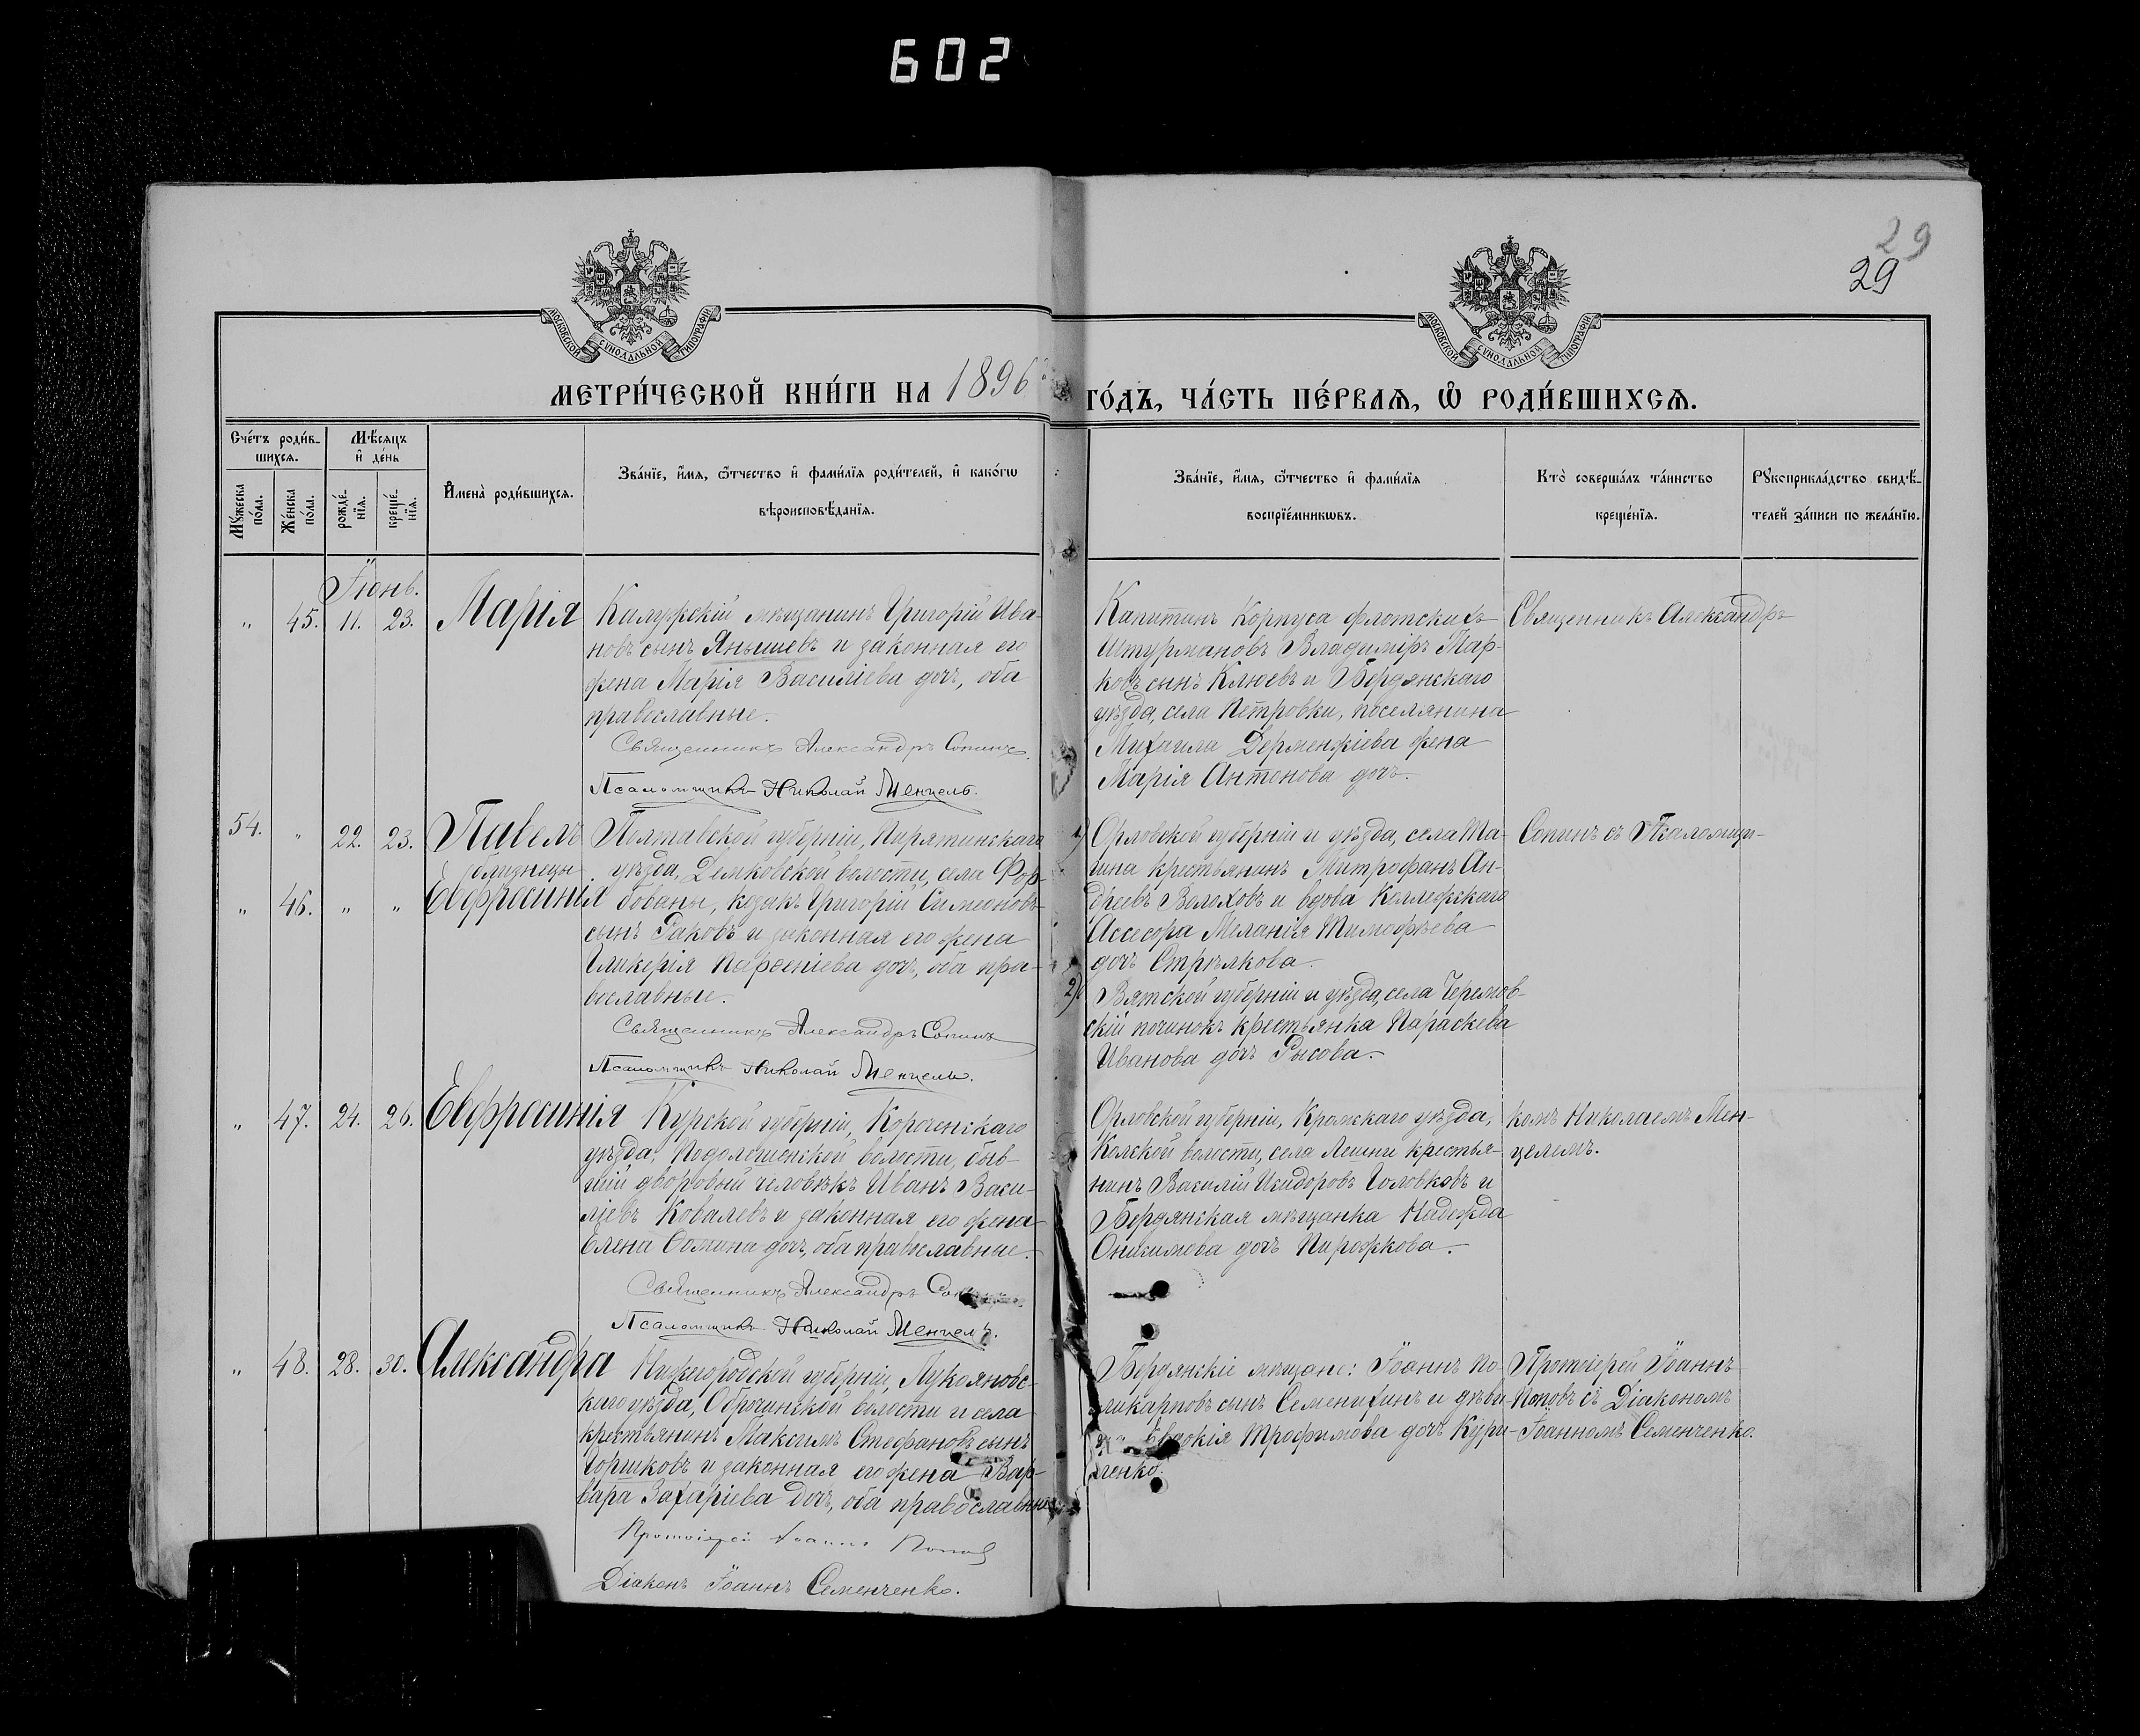 602
29
29
МОСКОВСКОЙ СѴНОДАЛЬНОЙ ТИПОГРАФІИ
МОСКОВСКОЙ СѴНОДАЛЬНОЙ ТИПОГРАФІИ
МЕТРИ́ЧЕСКОЙ КНИ́ГИ НА 1896 ГО́ДЪ, ЧА́СТЬ ПЕ́РВАѦ, Ѽ РОДИ́ВШИХСѦ.
Сче́тъ роди́в-
шихсѧ.
Мѣ́сяцъ
и҆ де́нь
Мꙋ́жеска
по́ла.
Же́нска
по́ла.
рожде́-
нїѧ.
креще́-
нїѧ.
И҆мена̀ роди́вшихсѧ.
Зва́нїе, и҆́мѧ, ѻ҆́тчество и҆ фами́лїѧ роди́телей, и҆ како́гѡ
вѣроисповѣ́данїѧ.
Зва́нїе, и҆́мѧ, ѻ҆́тчество и҆ фами́лїѧ
воспрїе́мникѡвъ.
Кто̀ соверша́лъ та́инство
креще́нїѧ.
Рꙋкоприкла́дство свидѣ́-
телей за́писи по жела́нїю.
Іюнь.
„ 45. 11. 23. Марія
Калужскій мѣщанинъ Григорій Ива-
новъ сынъ Янышевъ и законная его
жена Марія Василіева дочь, оба
православные.
Священникъ Александръ Сопинъ.
Псаломщикъ Николай Менцель.
Капитанъ Корпуса флотскихъ
Штурмановъ Владиміръ Мар-
ковъ сынъ Клюевъ и Бердянскаго
уѣзда, села Петровки, поселянина
Михаила Дерменжіева жена
Марія Антонова дочь.
Священникъ Александръ
54. „ 22. 23. Павелъ
близнецы
„ 46. „ „ Евфросинія
Полтавской губерніи, Пирятинскаго
уѣзда, Демковской волости, села Фор-
бованы, козакъ Григорій Симеоновъ
сынъ Раковъ и законная его жена
Гликерія Парѳеніева дочь, оба пра-
вославные.
Священникъ Александръ Сопинъ
Псаломщикъ Николай Менцель.
1) Орловской губерніи и уѣзда, села Та-
гина крестьянинъ Митрофанъ Ан-
дреевъ Волоховъ и вдова Коллежскаго
Ассесора Меланія Тимофѣева
дочь Стрѣлкова.
2) Вятской губерніи и уѣзда, села Черемов-
скій починокъ крестьянка Параскева
Иванова дочь Рысова.
Сопинъ съ Псаломщи-
„ 47. 24. 26. Евфросинія
Курской губерніи, Короченскаго
уѣзда, волости, быв-
шій дворовый человѣкъ Иванъ Васи-
ліевъ Ковалевъ и законная его жена
Елена Ѳомина дочь, оба православные.
Священникъ Александръ
Псаломщикъ Николай Менцель.
Орловской губерніи, Кромскаго уѣзда,
волости, села крестья-
нинъ Василій Исидоровъ Головковъ и
Бердянская мѣщанка Надежда
Онисимова дочь Пирожкова.
комъ Николаемъ Мен-
целемъ.
„ 48. 28. 30. Александра
Нижегородской губерніи, Лукояновс-
каго уѣзда, Оброчинской волости и села
крестьянинъ Максимъ Стефановъ сынъ
Горшковъ и законная его жена Вар-
вара Захаріева дочь, оба православные.
Протоіерей Іоаннъ Поповъ
Діаконъ Іоаннъ Семенченко.
Бердянскіе мѣщане: Іоаннъ По-
ликарповъ сынъ Семенихинъ и дѣви-
Евдокія Трофимова дочь Кури-
ченко.
Протоіерей Іоаннъ
Поповъ съ Діакономъ
Іоанномъ Семенченко.